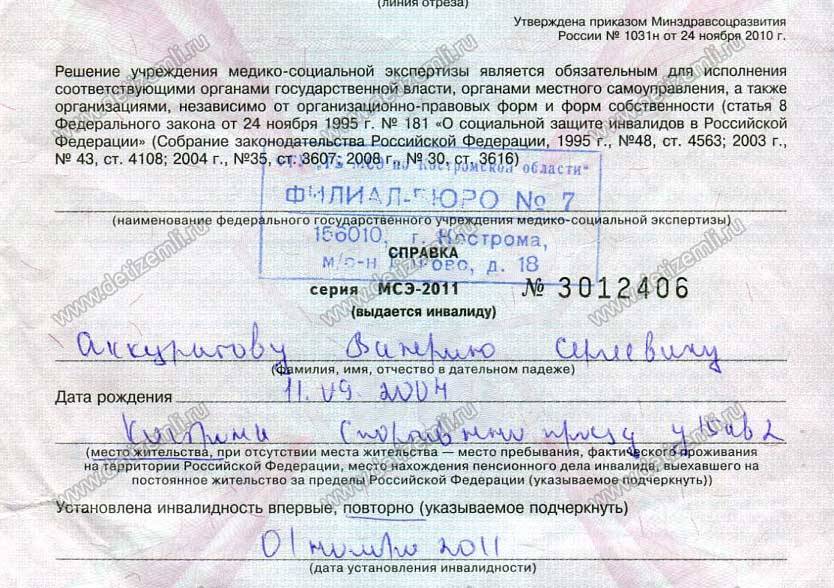 (линия отреза)
Утверждена приказом Минздравсоцразвития
России № 1031н от 24 ноября 2010 г.
Решение учреждения медико-социальной экспертизы является обязательным для исполнения
соответствующими органами государственной власти, органами местного самоуправления, а также
организациями, независимо от организационно-правовых форм и форм собственности (статья 8
Федерального закона от 24 ноября 1995 г. № 181 «О социальной защите инвалидов в Российской
Федерации» (Собрание законодательства Российской Федерации, 1995 г., №48, ст. 4563; 2003 г.,
№ 43, ст. 4108; 2004 г., №35, ст. 3607; 2008 г., № 30, ст. 3616)
МСЭ по Костромской области"
ФИЛИАЛ-БЮРО № 7
(наименование федерального государственного учреждения медико-социальной экспертизы)
156010, г. Кострома,
СПРАВКА
м/р-н д. 18
серия МСЭ-2011 № 3012406
(выдается инвалиду)
Аккуратову Валерию Сергеевичу
(фамилия, имя, отчество в дательном падеже)
Дата рождения 11.09.2004
Кострома
(место жительства, при отсутствии места жительства — место пребывания, фактического проживания
на территории Российской Федерации, место нахождения пенсионного дела инвалида, выехавшего на
постоянное жительство за пределы Российской Федерации (указываемое подчеркнуть))
Установлена инвалидность впервые, повторно (указываемое подчеркнуть)
01 ноября 2011
(дата установления инвалидности)
www.detizemli.ru